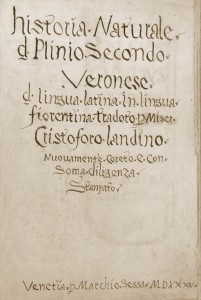 historia Naturale
d Plinio Secondo
Veronese
d lingua latina in lingua
fiorentina tradoto p Miser
Cristoforo landino
Nuovamente Coreto e Con
Soma diligenza
Stampato
Venetia p Marchio Sessa MD